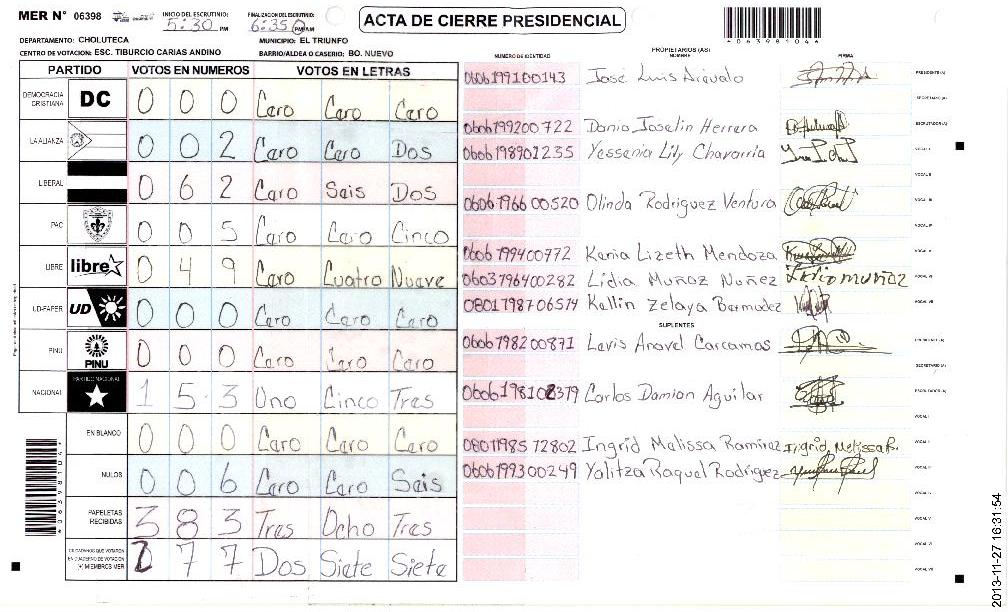 MER N° 06398
INICIO DEL ESCRUTINIO:
5:30 PM
FINALIZACION DEL ESCRUTINIO:
6:35 PM/AM
ACTA DE CIERRE PRESIDENCIAL
*063981046*
DEPARTAMENTO: CHOLUTECA
MUNICIPIO: EL TRIUNFO
CENTRO DE VOTACION: ESC. TIBURCIO CARIAS ANDINO
BARRIO/ALDEA O CASERIO: BO. NUEVO
PARTIDO VOTOS EN NUMEROS VOTOS EN LETRAS
DEMOCRACIA CRISTIANA DC 0 0 0 Caro Caro Caro
LA ALIANZA 0 0 2 Caro Caro Dos
LIBERAL 0 6 2 Caro Sais Dos
PAC 0 0 5 Caro Caro Cinco
LIBRE libre 0 4 9 Caro Cuatro Nuave
UD-FAPER UD 0 0 0 Caro Caro Caro
PINU PINU 0 0 0 Caro Caro Caro
NACIONAL PARTIDO NACIONAL 1 5 3 Uno Cinco Tras
EN BLANCO 0 0 0 Caro Caro Caro
NULOS 0 0 6 Caro Caro Sais
PAPELETAS RECIBIDAS 3 8 3 Tras Ocho Tras
CIUDADANOS QUE VOTARON EN CUADERNO DE VOTACION (+) MIEMBROS MER 2 7 7 Dos Siate Siate
NUMERO DE IDENTIDAD PROPIETARIOS (AS) NOMBRE FIRMA
0606199100143 José Luis Arévalo PRESIDENTE (A)
SECRETARIO (A)
0606199200722 Dania Joselin Herrera ESCRUTADOR (A)
0606198901235 Yessenia Lily Chavarria VOCAL I
VOCAL II
0606196600520 Olinda Rodriguez Ventura VOCAL III
VOCAL IV
0606199400772 Kenia Lizeth Mendoza VOCAL V
0603796400282 Lidia Muñoz Nuñez Lidia muñoz VOCAL VI
0801798706574 Kellin Zelaya Bermudez VOCAL VII
SUPLENTES
0606198200871 Levis Anavel Carcamos PRESIDENTE (A)
SECRETARIO (A)
Carlos Damian Aguilar ESCRUTADOR (A)
VOCAL I
0801198572802 Ingrid Melissa Ramirez Ingrid Melissa R. VOCAL II
0606199300249 Yalitza Raquel Rodriguez VOCAL III
VOCAL IV
VOCAL V
VOCAL VI
VOCAL VII
2013-11-27 16:31:54